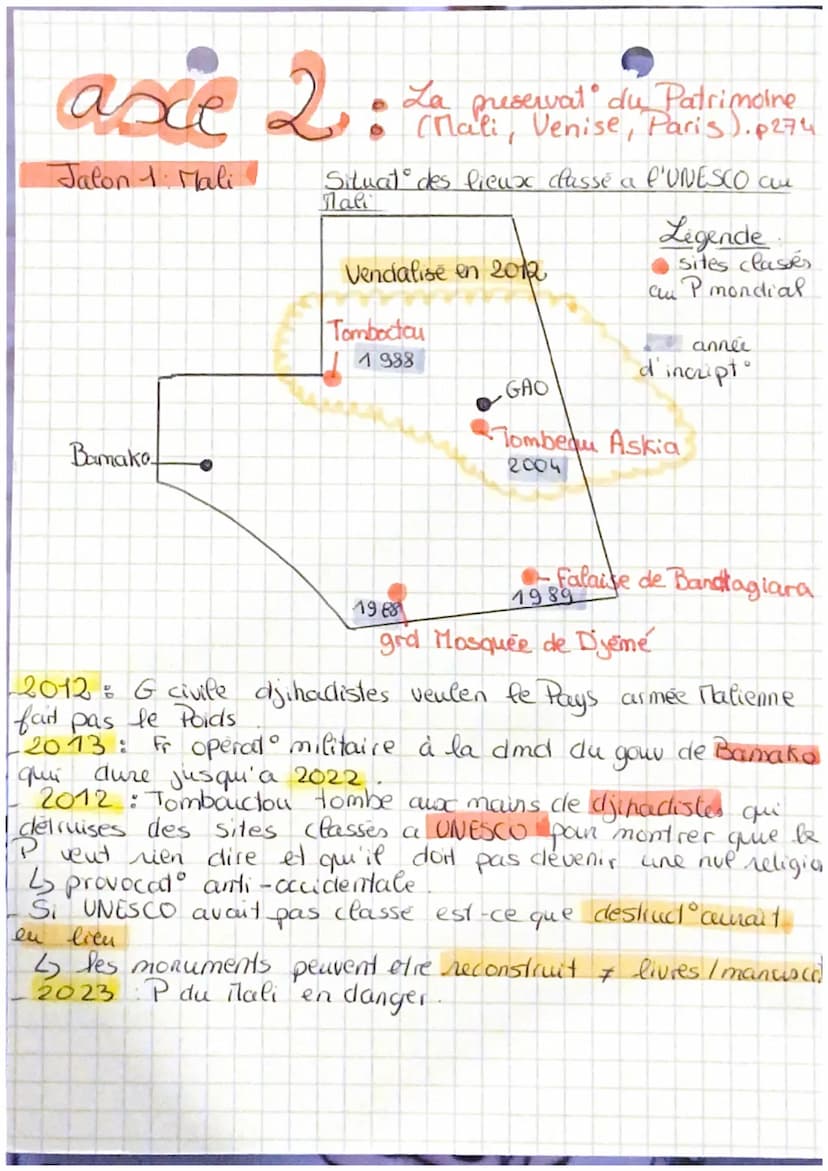 axe 2 : La preservat° du Patrimoine
(Mali, Venise, Paris). p274
Jalon 1: Mali
Situat° des lieux classé a l'UNESCO au
Mali
Légende
sites classés
au P mondial
année
d'incript°
Vendalisé en 2012
Tomboctou
1988
GAO
Tombeau Askia
2004
Bamako
Falaise de Bandiagiara
1989
1988
grd Mosquée de Djémé
- 2012 : G civile djihadistes veulen le Pays armée Malienne
fait pas le Poids
- 2013 : Fr opérat° militaire à la dmd du gouv de Bamako
qui dure jusqu'a 2022.
- 2012 : Tombouctou tombe aux mains de djihadistes qui
détruises des sites classés a UNESCO pour montrer que le
P veut rien dire et qu'il doit pas devenir une nvl religio
↳ provocat° anti-occidentale.
- Si UNESCO avait pas classé est-ce que destruct° aurait
eu lieu
↳ les monuments peuvent etre reconstruit ≠ livres / manuscri
- 2023 : P du Mali en danger.